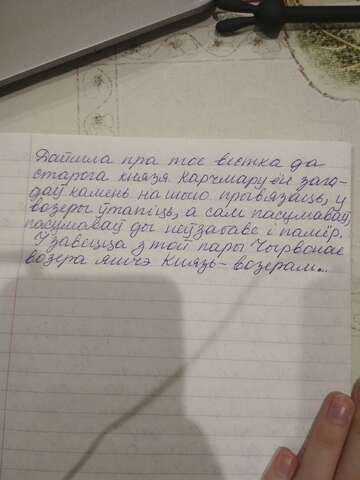 Дайшла пра тое вестка да
старога князя. Карчмару ён зага-
даў камень на шыю прывязаць, у
возеры ўтапіць, а сам пасумаваў,
пасумаваў ды неўзабаве і памёр.
Узавецца з той пары Чырвонае
возера яшчэ Князь-возерам...